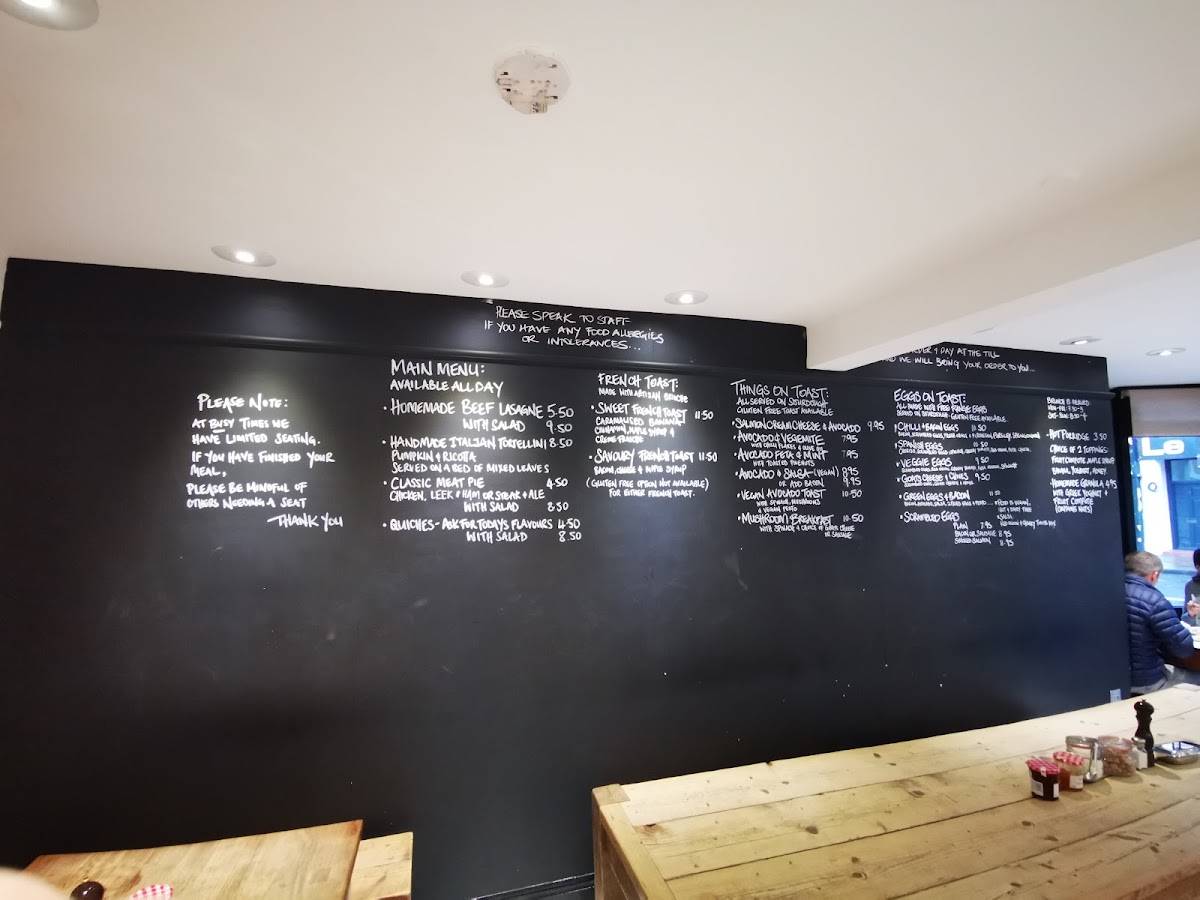 PLEASE SPEAK TO STAFF
IF YOU HAVE ANY FOOD ALLERGIES
OR INTOLERANCES...
ORDER & DAY AT THE TILL
AND WE WILL BRING YOUR ORDER TO YOU...
PLEASE NOTE:
AT BUSY TIMES WE
HAVE LIMITED SEATING.
IF YOU HAVE FINISHED YOUR
MEAL,
PLEASE BE MINDFUL OF
OTHERS NEEDING A SEAT
THANK YOU
MAIN MENU:
AVAILABLE ALL DAY
• HOMEMADE BEEF LASAGNE 5.50
WITH SALAD 9.50
• HANDMADE ITALIAN TORTELLINI 8.50
PUMPKIN & RICOTA
SERVED ON A BED OF MIXED LEAVES
• CLASSIC MEAT PIE 4.50
CHICKEN, LEEK & HAM OR STEAK & ALE
WITH SALAD 8.50
• QUICHES - ASK FOR TODAYS FLAVOURS 4.50
WITH SALAD 8.50
FRENCH TOAST:
MADE WITH ARTISAN BRIOCHE
• SWEET FRENCH TOAST 11.50
CARAMALISED BANANA
CINNAMON, MAPLE SYRUP &
CREME FRAICHE
• SAVOURY FRENCH TOAST 11.50
BACON, CHEESE & MAPLE SYRUP
(GLUTEN FREE OPTION NOT AVAILABLE)
FOR EITHER FRENCH TOAST.
THINGS ON TOAST:
ALL SERVED ON SOURDOUGH
GLUTEN FREE TOAST AVAILABLE
• SALMON, CREAM CHEESE & AVOCADO 9.95
• AVOCADO & VEGEMITE 7.95
WITH CHILLI FLAKES & OLIVE OIL
• AVOCADO FETA & MINT 7.95
WITH TOASTED PEANUTS
• AVOCADO & SALSA (VEGAN) 8.95
OR ADD BACON 9.95
• VEGAN AVOCADO TOAST 10.50
WITH SPINACH, MUSHROOMS
& VEGAN PESTO
• MUSHROOM BREAKFAST 10.50
WITH SPINACH & CHOICE OF GOATS CHEESE
OR SAUSAGE
EGGS ON TOAST:
ALL MADE WITH FREE RANGE EGGS
SERVED ON SOURDOUGH - GLUTEN FREE AVAILABLE
• CHILLI & BACON EGGS 10.50
• SPANISH EGGS 10.50
• VEGGIE EGGS 9.50
• GOATS CHEESE & CHIVES 9.50
• GREEN EGGS & BACON 11.50
• SCRAMBLED EGGS
PLAIN 7.95
BACON OR SAUSAGE 8.95
SMOKED SALMON 11.95
BRUNCH IS SERVED:
• HOT PORRIDGE 3.50
CHOICE OF 2 TOPPINGS
FRUIT COMPOTE, MAPLE SYRUP
BANANA, YOGHURT, HONEY
• HOMEMADE GRANOLA 4.95
WITH GREEK YOGHURT &
FRUIT COMPOTE
(CONTAINS NUTS)